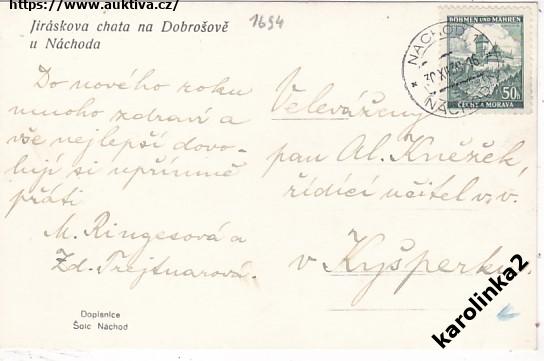 https://www.auktiva.cz/
1694
Jiráskova chata na Dobrošově
u Náchoda
BÖHMEN UND MÄHREN
50h
ČECHY A MORAVA
NÁCHOD 1
NÁCHOD
Do nového roku
mnoho zdraví a
vše nejlepší dovo-
lují si upřímně
přáti
M. Ringesová a
Zd. Trejtnarová.
Velevážený
pan Al. Kněžek,
řídící učitel v.v.
v Kyšperku
Dopisnice
Šolc Náchod
karolinka2